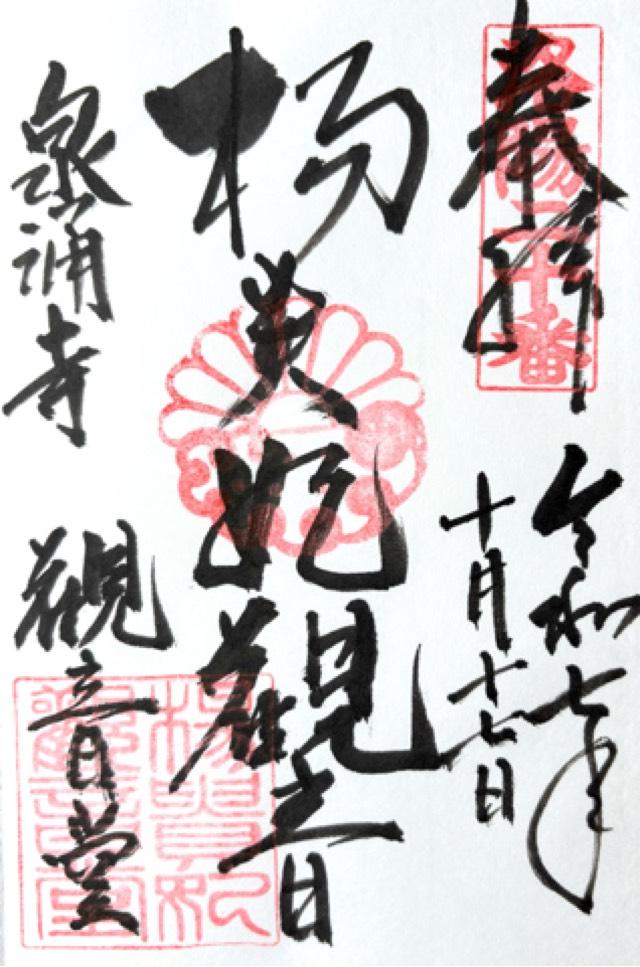 奉拝
洛陽二十番
令和七年
十月十七日
楊貴妃観音
泉涌寺
観音堂
楊貴妃
觀音堂